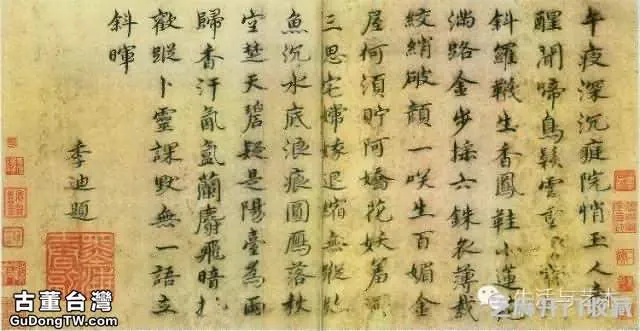 午夜深沉庭院悄玉人
醒聞啼鳥鬢雲
斜羅襪生香鳳鞋小蓮
滿路金步搖六銖衣薄裁
絞綃破顏一笑生百媚金
屋何須貯阿嬌花妖
三思宅嫦娥退縮無蹤
魚沉水底浪痕圓鴈落秋
空楚天碧疑是陽臺為雨
歸香汗氤氳蘭麝飛暗
歡蹤卜靈課默無一語立
斜暉
李迪題
古董台灣
GuDongTW.com
生活与艺术